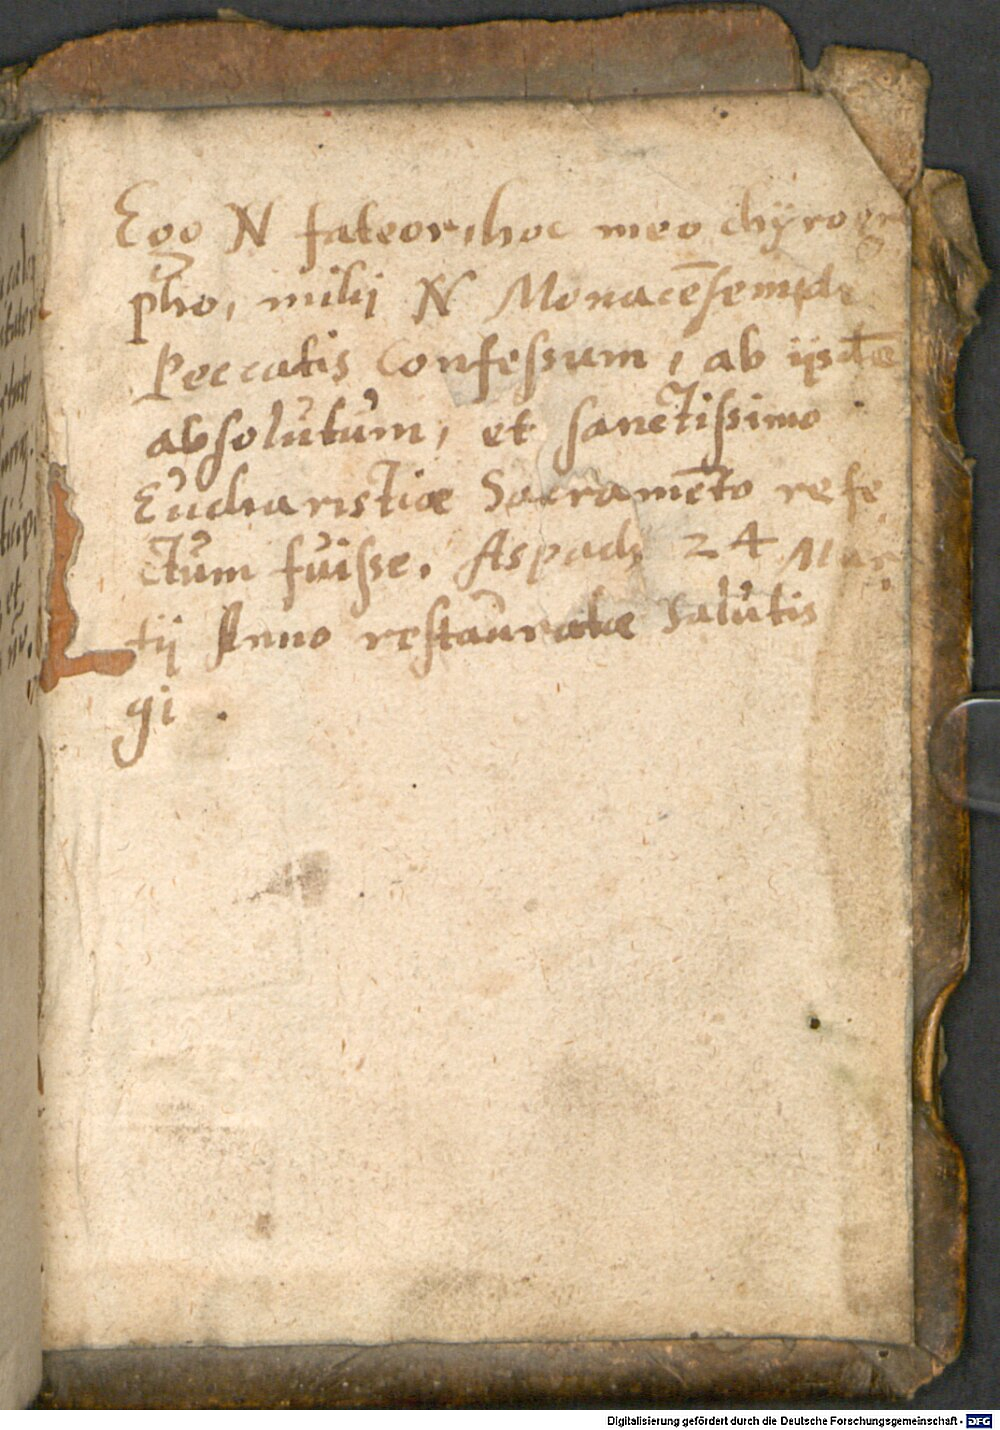 Ego N fateor, hoc meo chÿrogra
pho, mihi N Monacēsem, de
Peccatis Confessum, ab ijsdē
absolutum, et sanctissimo
Eucharistiæ Sacramēto refe
ctum fuisse. Aspach 24 Mar
tij Anno restauratæ Salutis
91.
Digitalisierung gefördert durch die Deutsche Forschungsgemeinschaft - DFG